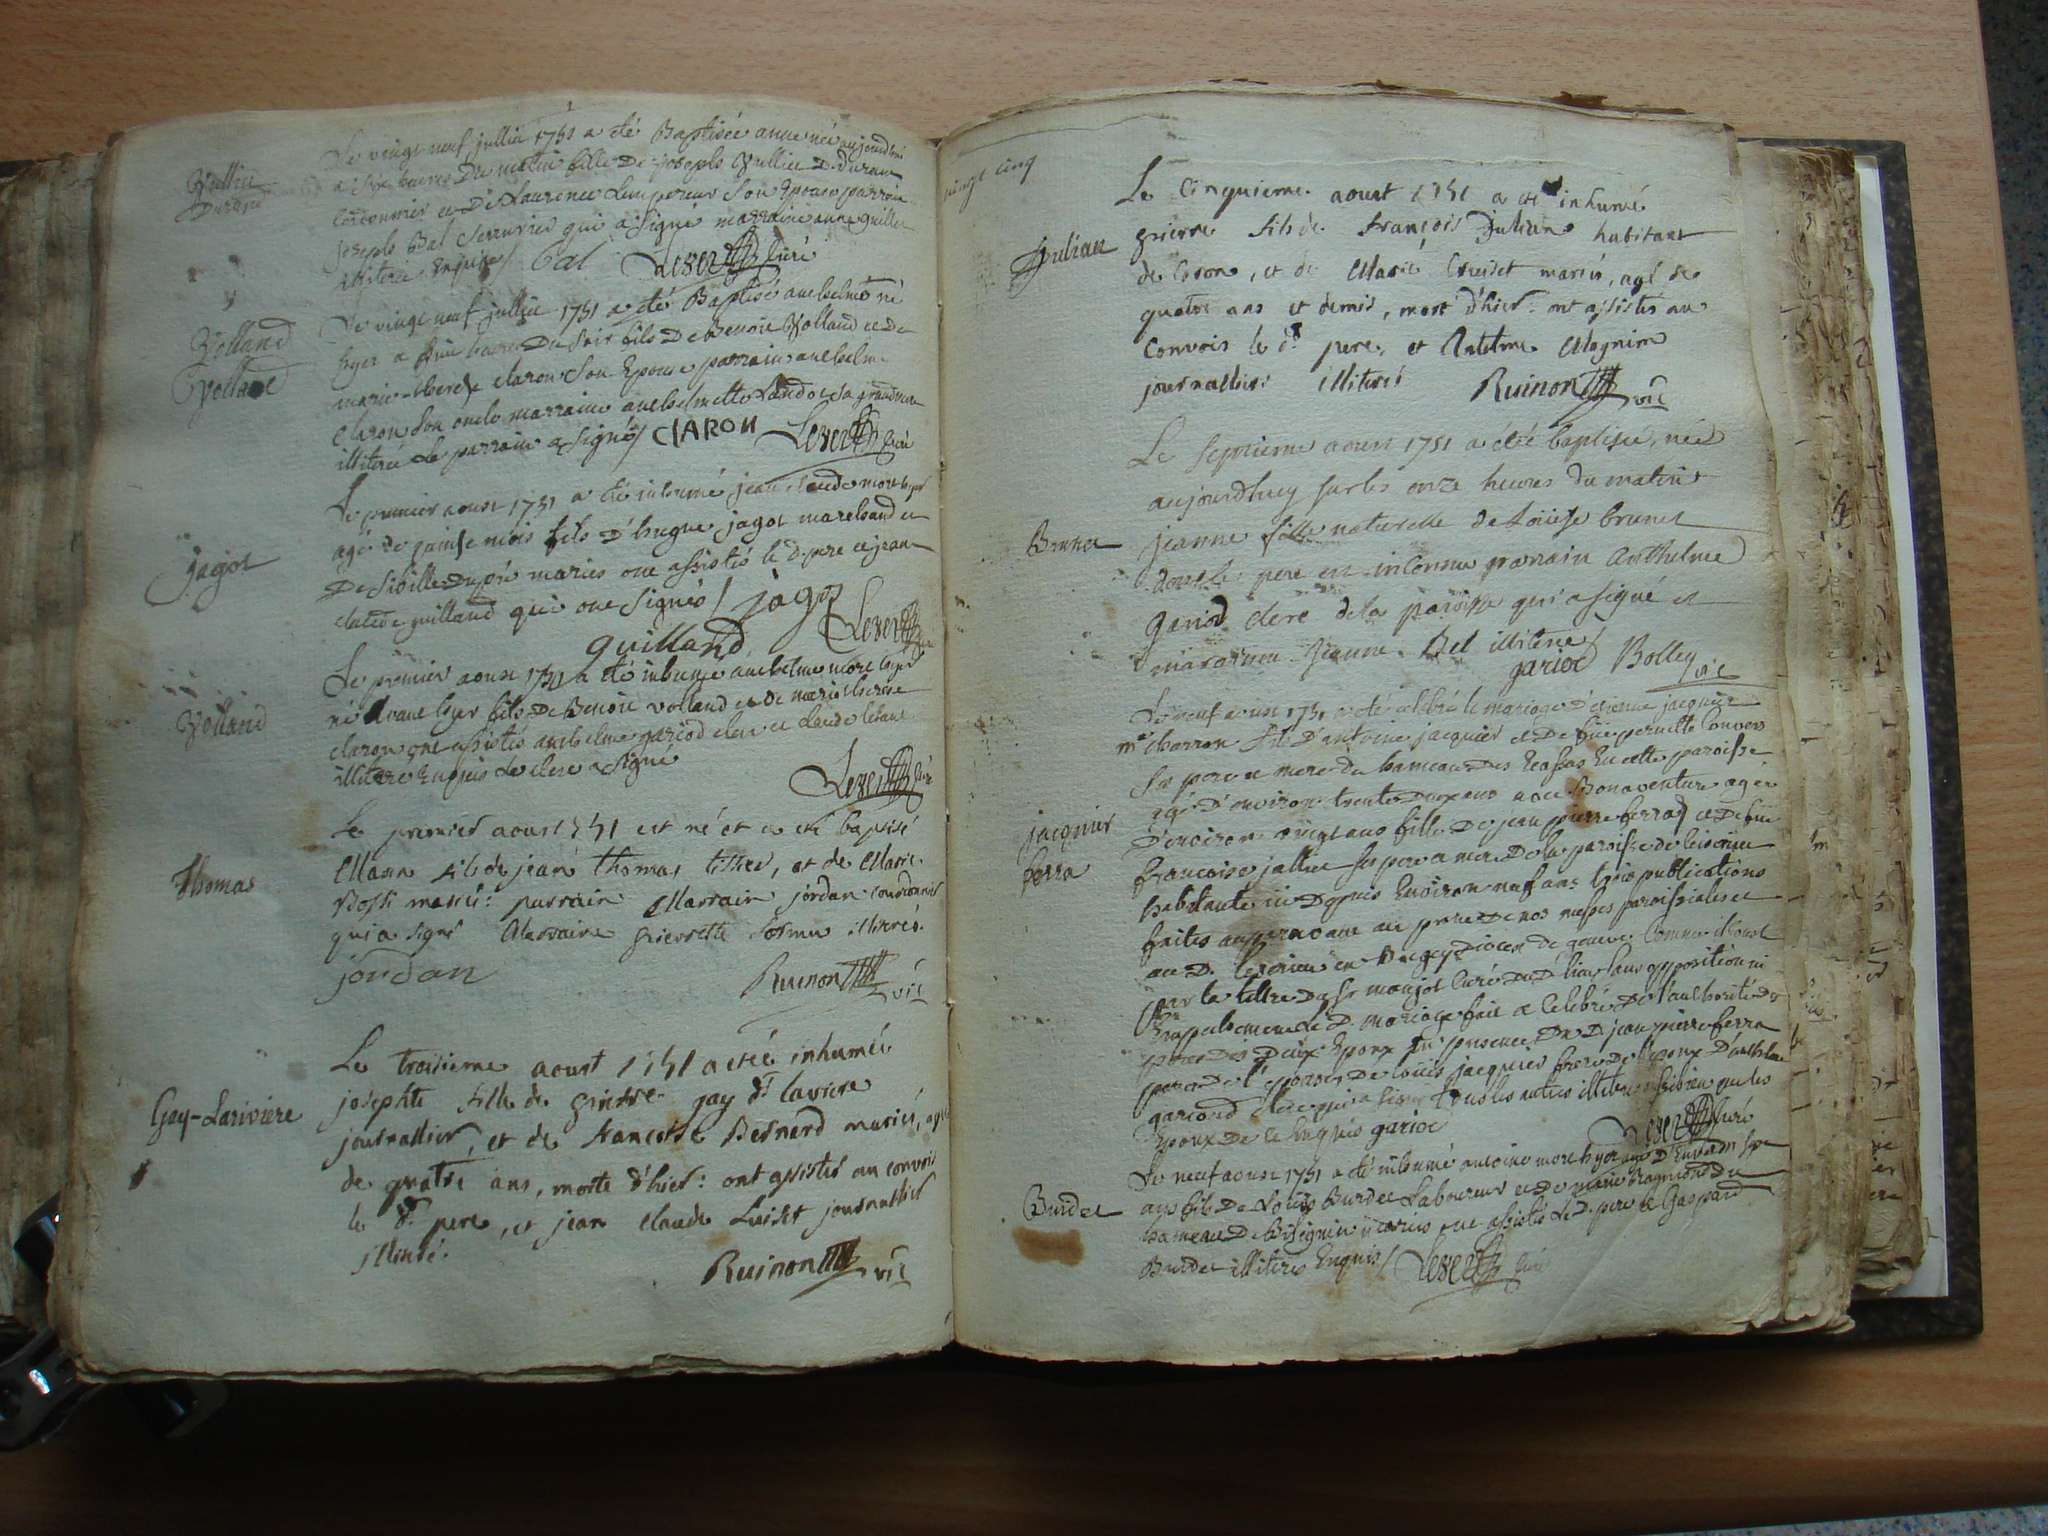 Vullin
Durand
Le vingt neuf jullie 1751 a eté Baptisée anne née aujourdhui
a six heures Du matin fille De joseph Vullin D. Durand
Cordonnier et De Laurence Lempereur Son Epouse parrain
joseph Bal Serrurier qui a Signé marraine anne guillet
illiterée Enquise / Bal Lever Curé
Volland
Volland
Le vingt neuf jullie 1751 a eté Baptisé anthelme né
hyer a heures Du Soir fils De Benoit Volland et De
marie-therese claron Son Epouse parrain anthelme
Claron Son oncle marraine anthelmette Sa grandmere
illiterée Le parrain a Signé / CLARON Lever Curé
Jagot
Le premier aoust 1751 a eté inhumé jean claude mort hyer
agé de quinse mois fils D'hugue jagot marchand et
De Sibille Dupré mariés ont assistés le d. pere et jean
claude guilland qui ont Signés / jagot
guilland Lever
Volland
Le premier aoust 1751 a eté inhumé anthelme mort hyer
né avant hyer fils De Benoit volland et De marie therese
claron ont assistés anthelme gariod clerc et
illiteré Enquis Le clerc a Signé
Lever Curé
Thomas
Le premier aoust 1751 est né et a eté baptisé
Marin fils de jean thomas, et de Marie
Rosset mariés: parrain Marrain jordan cordonnier
qui a signé Marraine pierrette illiterée.
jordan Ruinon vic
Gay-Lariviere
Le troisieme aoust 1751 a eté inhumée
josephte fille de pierre gay dt lariviere
journallier, et de françoise Bernard mariés, agée
de quatre ans, morte d'hier: ont assistés au convois
le dt pere, et jean claude Luiset journallier
illiteré.
Ruinon vic
vingt cinq
Julian
Le Cinquieme aoust 1751 a eté inhumé
pierre fils de François Julian habitant
de Coron, et de Marie Cruiset mariés, agé de
quatre ans et demis, mort d'hier: ont assistés au
Convois le dt pere, et Antelme Magnin
journallier illiterés Ruinon vic
Brunet
Le Septieme aoust 1751 a été baptisée, née
aujourdhuy sur les onze heures du matin
jeanne fille naturelle de Loüise brunet
dont le pere est inconnu parrain Anthelme
gariod clerc de la paroisse qui a signé et
maraine Jeanne Bel illiterée /
gariod Bolley vic
jacquier
ferra
Le neuf aoust 1751 a eté célébré le mariage D'étienne jacquier
me charron fils D'antoine jacquier et De fue pernette Convers
Ses pere et mere du hameau des Ecassas En cette paroisse
agé D'environ trente Deux ans avec Bonaventure agée
D'environ vingt ans fille De jean pierre ferra et De fue
françoise jallin Ses pere et mere De la paroisse de
habitante ici Depuis Environ neuf ans trois publications
faites auparavant au prone De nos messes paroissiales et
au D. en Bugey Diocese de geneve Comme il conste
par la lettre Du Sr manjot Curé du D. lieu Sans opposition ni
Empechement Le D. mariage fait et Celebré De l'authorité Des
peres Des Deux Epoux En presence Du D. jean pierre ferra
pere De l'epouse De louis jacquier frere De l'epoux D'anthelme
gariod Clerc qui a Signé Tous les autres illiterés aussi bien que les
Epoux De ce Enquis gariod Lever Curé
Burdet
Le neuf aoust 1751 a eté inhumé antoine mort hyer agé D'Environ Sept
ans fils De Loüis Burdet Laboureur et De marie Bragmond du
hameau De Bisignin mariés ont assistés Le D. pere et Gaspard
Burdet illiterés Enquis / Lever Curé